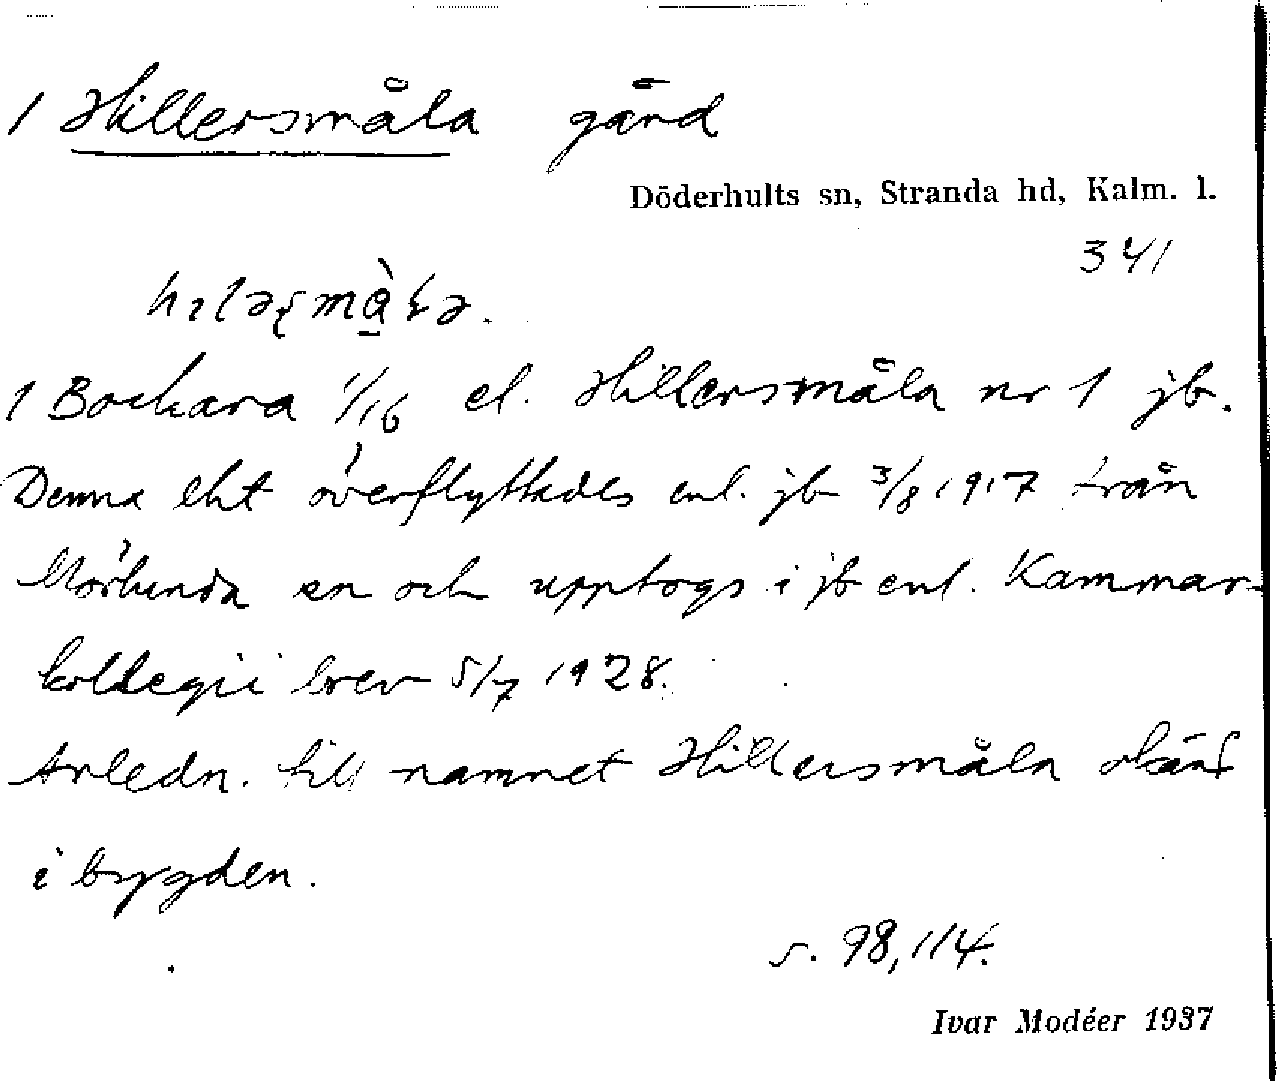 1 Hillersmåla gård
Döderhults sn, Stranda hd, Kalm. l.
341
1 Bockara 1/16 el. Hillersmåla nr 1 jb.
Denna eht överflyttades enl. jb 3/8 1917 från
Mörlunda sn och upptogs i jb enl. Kammar-
kollegii brev 5/7 1928.
Anledn. till namnet Hillersmåla okänd
i bygden.
s. 98, 114.
Ivar Modéer 1937